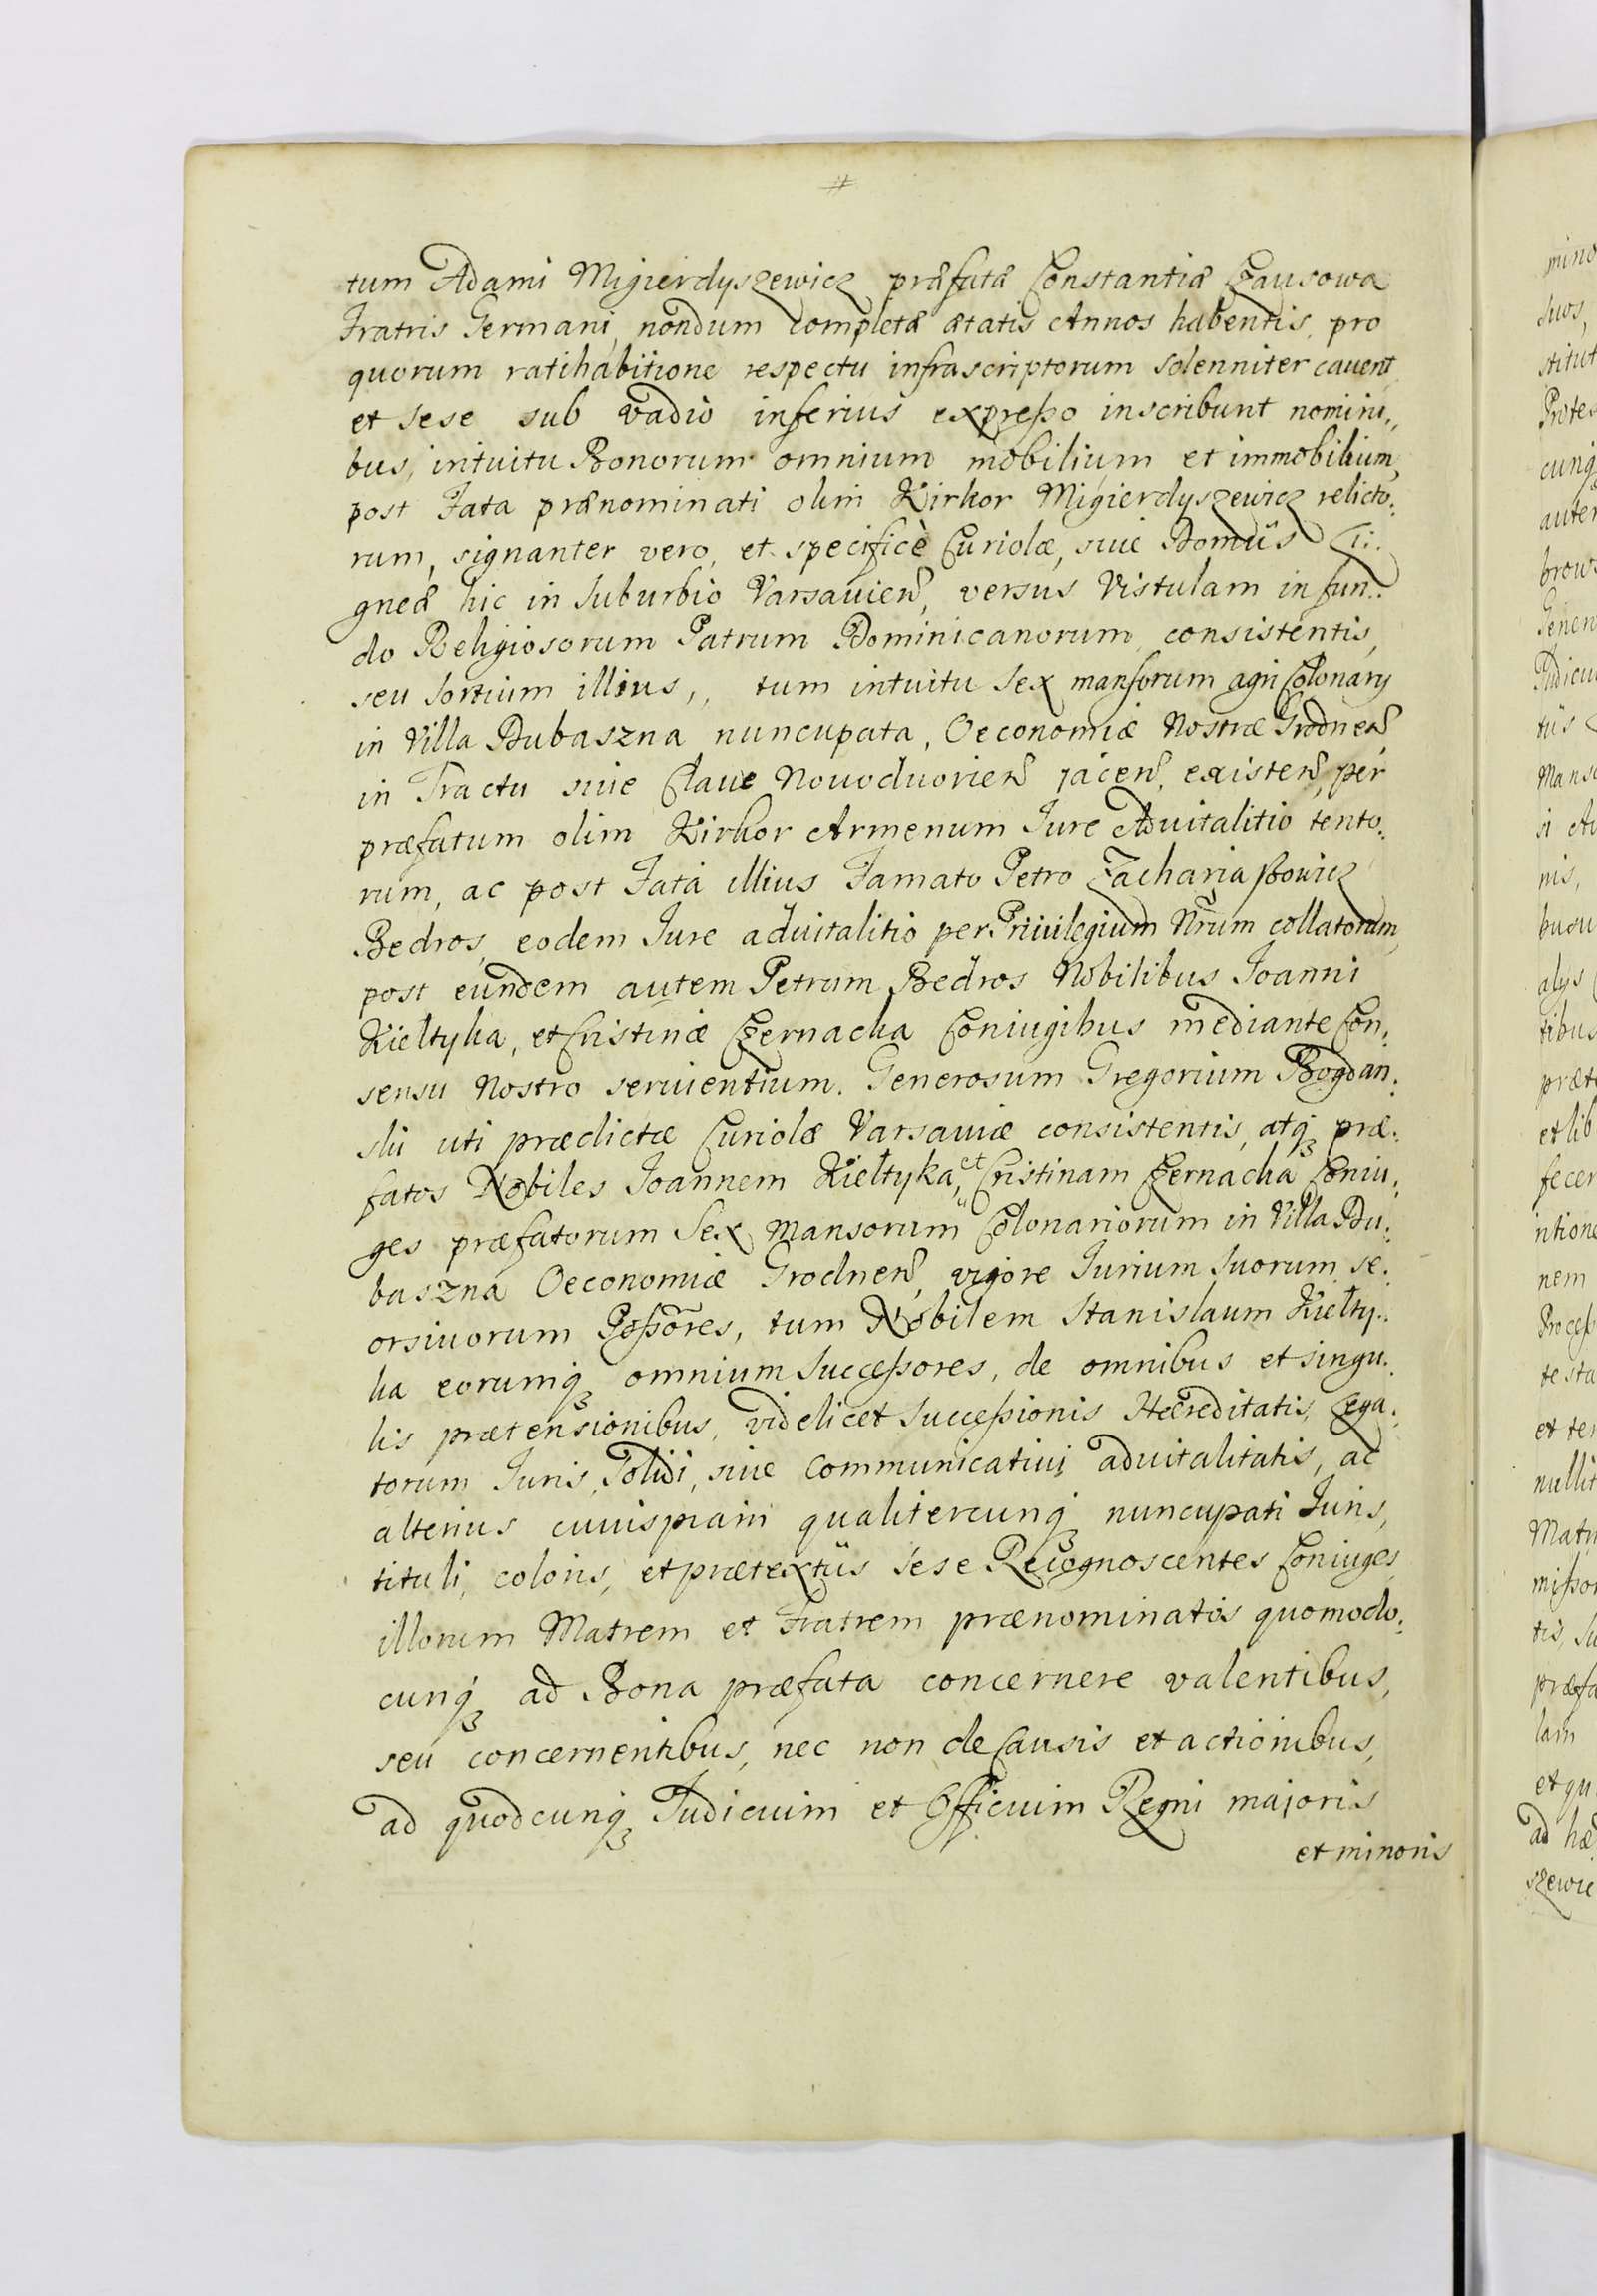 #
tum Adami Migierdyszewicz præfatæ Constantiæ Czausowa
Fratris Germani, nondum completæ ætatis Annos habentis, pro
quorum ratihabitione respectu infrascriptorum solenniter cavent
et sese sub vadio inferius expreßo inscribunt nomini„
bus, intuitu Bonorum omnium mobilium et immobilium,
post Fata prænominati olim Kirkor Migierdyszewicz relicto:
rum, signanter vero, et specificè Curiolæ, sive Domûs Li:
gneæ hic in Suburbio Varsavien, versus Vistulam in fun:
do Religiosorum Patrum Dominicanorum, consistentis,
seu sortium illius,, tum intuitu Sex mansorum agri Colonarij
in Villa Dubaszna nuncupata, Oeconomiæ Nostræ Grodnen,
in Tractu sive Clave Novodvorien jacen, existen, per
præfatum olim Kirkor Armenum Jure Advitalitio tento:
rum, ac post Fata illius Famato Petro Zachariaßowicz
Bedros, eodem Jure advitalitio per Privilegium Nrum collatorum,
post eundem autem Petrum Bedros Nobilibus Joanni
Kieltyka, et Cristinæ Czernacka Coniugibus mediante Con:
sensu Nostro servientium. Generosum Gregorium Bogdan:
ski uti prædictæ Curiolæ Varsaviæ consistentis, atq præ:
fatos Nobiles Joannem Kiełtyka, et Cristinam Czernacka Coniu:
ges præfatorum Sex Mansorum Colonariorum in Villa Du:
baszna Oeconomiæ Grodnen, vigore Jurium Suorum se:
orsivorum Poßores, tum Nobilem Stanislaum Kiełty:
ka eorumq omnium Succeßores, de omnibus et singu:
lis prætensionibus, videlicet Succeßionis Hæreditatis, Lega:
torum Juris, Solidi, sive Communicativi advitalitatis, ac
alterius cuiuspiam qualitercunq nuncupati Juris,
tituli, coloris, et prætextûs sese Recognoscentes Coniuges,
illorum Matrem et Fratrem prænominatos quomodo:
cunq ad Bona præfata concernere valentibus,
seu concernentibus, nec non de Causis et actionibus,
ad quodcunq Judicium et Officium Regni majoris
et minoris